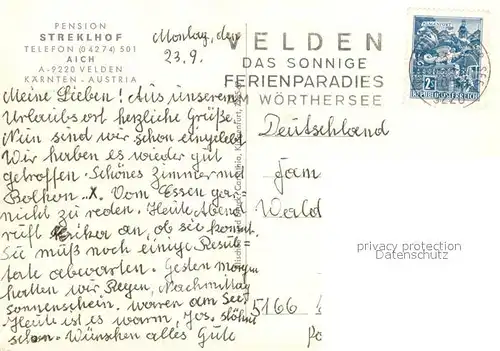 PENSION
STREKLHOF
TELEFON (04274) 501
AICH
A-9220 VELDEN
KÄRNTEN - AUSTRIA
Montag, den
23.9.
VELDEN
DAS SONNIGE
FERIENPARADIES
AM WÖRTHERSEE
REPUBLIK ÖSTERREICH
Meine Lieben! Aus unserem
Urlaubsort herzliche Grüße.
Nun sind wir schon eingelebt
Wir haben es wieder gut
getroffen. Schönes Zimmer mit
Balkon X. Vom Essen gar
nicht zu reden. Heute Abend
ruft Erika an, ob sie kommt.
Sie muß noch einige Resul-
tate abwarten. Gestern morgen
hatten wir Regen, Nachmittag
Sonnenschein. waren am See.
Heute ist es warm, Jos. stöhnt
schon. Wünschen alles Gute
Deutschland
Fam
Wald
5166
privacy protection
Datenschutz